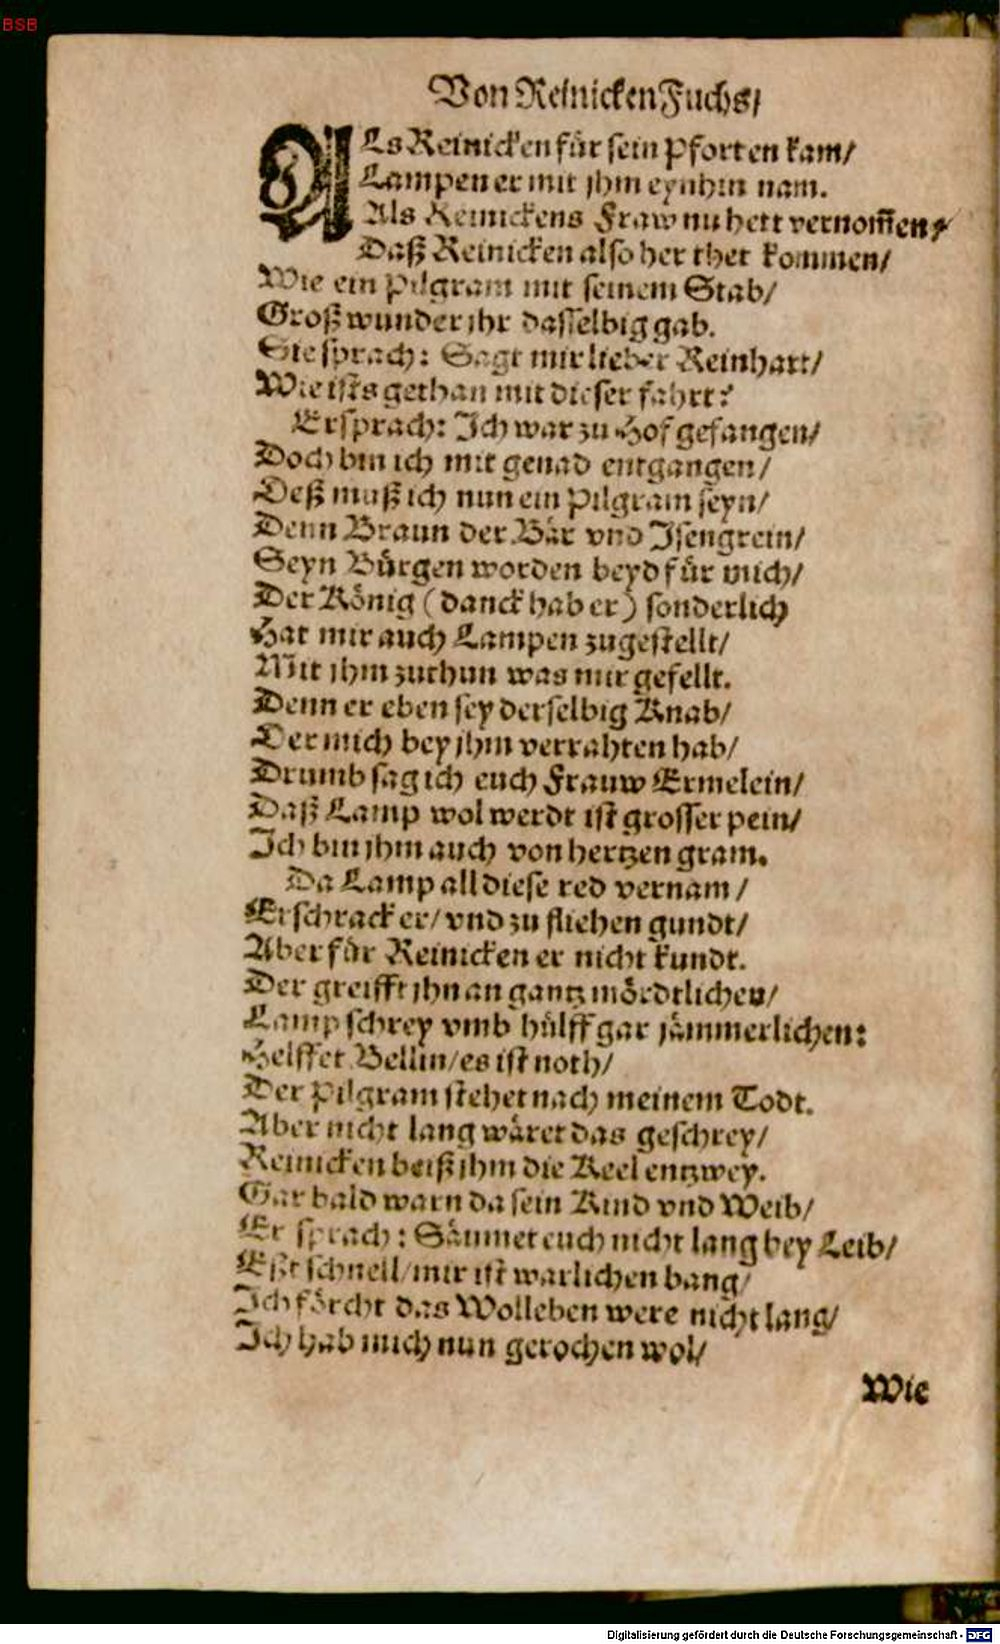 BSB
Von Reinicken Fuchs/
ALs Reinicken für sein Pforten kam/
Lampen er mit jhm eynhin nam.
Als Reinickens Fraw nu hett vernom̄en/
Daß Reinicken also her thet kommen/
Wie ein Pilgram mit seinem Stab/
Groß wunder jhr dasselbig gab.
Sie sprach: Sagt mir lieber Reinhart/
Wie ists gethan mit dieser fahrt?
Er sprach: Ich war zu Hof gefangen/
Doch bin ich mit genad entgangen/
Deß muß ich nun ein Pilgram seyn/
Denn Braun der Bär vnd Isengrein/
Seyn Bürgen worden beyd für mich/
Der König (danck hab er) sonderlich
Hat mir auch Lampen zugestellt/
Mit jhm zuthun was mir gefellt.
Denn er eben sey derselbig Knab/
Der mich bey jhm verrahten hab/
Drumb sag ich euch Frauw Ermelein/
Daß Lamp wol werdt ist grosser pein/
Ich bin jhm auch von hertzen gram.
Da Lamp all diese red vernam/
Erschrack er/ vnd zu fliehen gundt/
Aber für Reinicken er nicht kundt.
Der greifft jhn an gantz mördtlichen/
Lamp schrey vmb hülff gar jämmerlichen:
Helffet Bellin/ es ist noth/
Der Pilgram stehet nach meinem Todt.
Aber nicht lang wäret das geschrey/
Reinicken beiß jhm die Keel entzwey.
Gar bald warn da sein Kind vnd Weib/
Er sprach: Säumet euch nicht lang bey Leib/
Eßt schnell/ mir ist warlichen bang/
Ich förcht das Wolleben were nicht lang/
Ich hab mich nun gerochen wol/
Wie
Digitalisierung gefördert durch die Deutsche Forschungsgemeinschaft - DFG